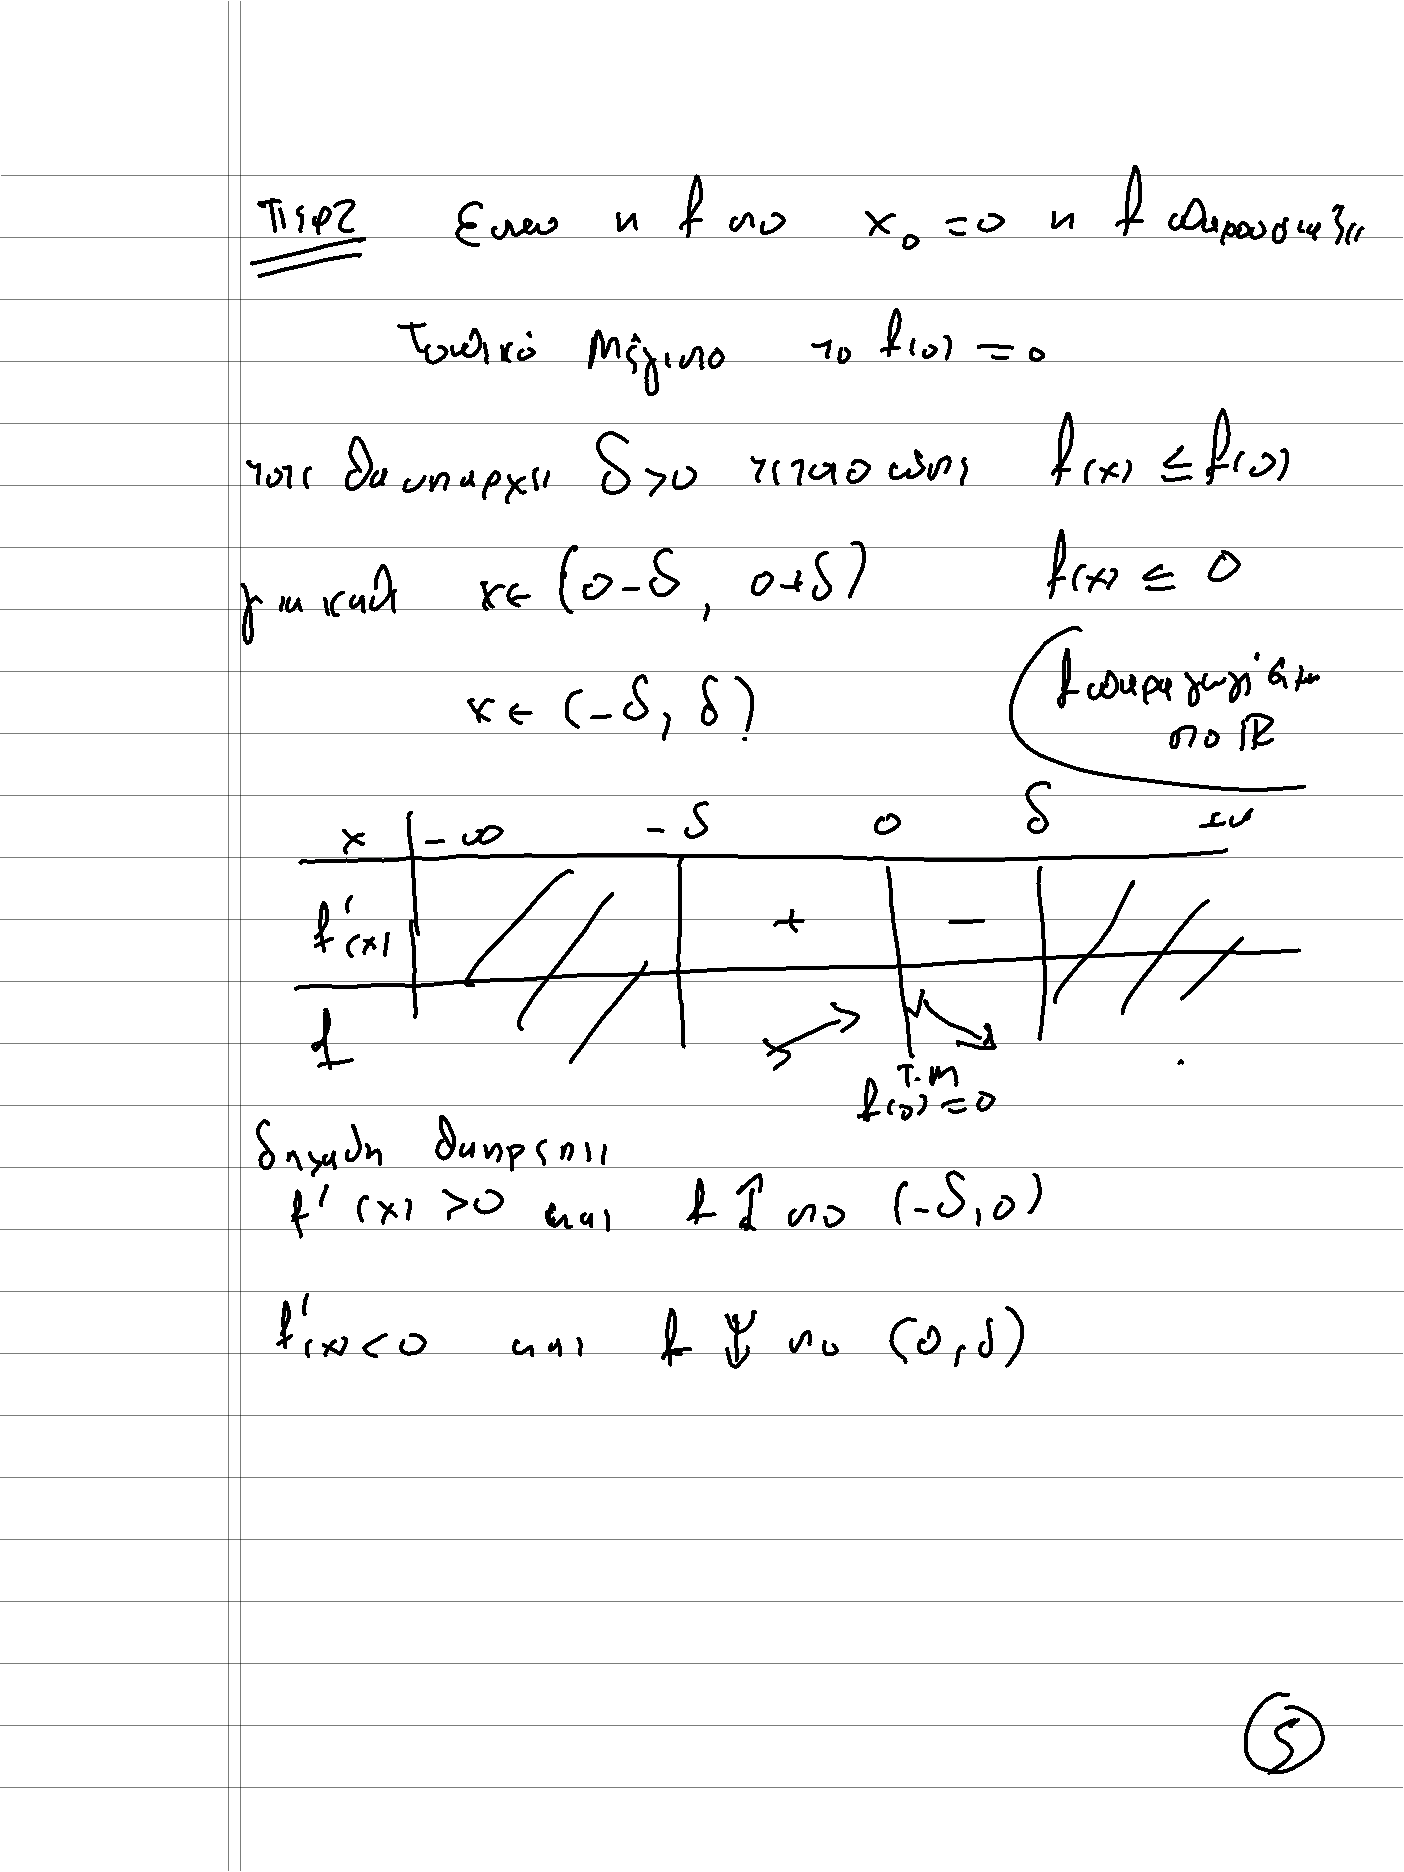 Περ2 Εστω η f στο x₀ = 0 η f παρουσιάζει
Τοπικό Μέγιστο το f(0) = 0
τοτε θα υπαρχει δ>0 τετοιο ώστε f(x) ≤ f(0)
για καθε x∈ (0-δ, 0+δ) f(x) ≤ 0
x∈ (-δ, δ)
f παραγωγίσιμη
στο ℝ
x -∞ -δ 0 δ +∞
f'(x) + -
f
Τ.Μ
f(0)=0
δηλαδη θα πρεπει
f'(x) >0 και f ↑ στο (-δ,0)
f'(x)<0 και f ↓ στο (0,δ)
5